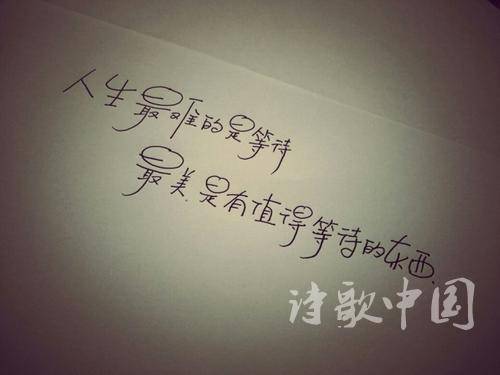 人生最难的是等待
最美.是有值得等待的东西.
诗歌中国